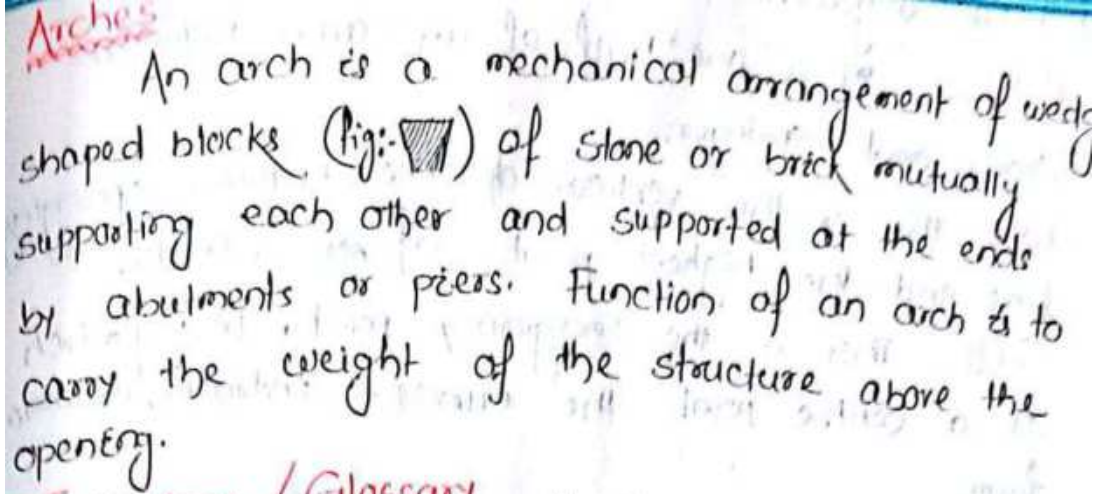 Arches
An arch is a mechanical arrangement of wedg
shaped blocks (fig:- ) of stone or brick mutually
supporting each other and supported at the ends
by abutments or piers. Function of an arch is to
carry the weight of the structure above the
opening.
/ Glossary